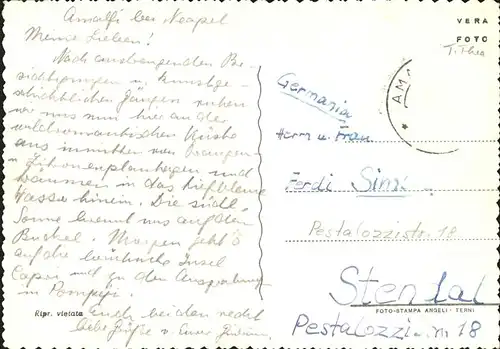 Amalfi bei Neapel
Meine Lieben!
Nach anstrengenden Be-
sichtigungen u. kunstge-
schichtlichen Gängen ruhen
wir uns nun hier an der
wildromantischen Küste
aus inmitten von Orangen-
u. Zitronenplantagen und
träumen in das tiefblaue
Wasser hinein. Die südl.
Sonne brennt uns auf den
Buckel. Morgen geht's
auf die Insel
Capri und zu den Ausgrabungen
in Pompeji.
Euch beiden recht
liebe Grüße v. Eurer
Ripr. vietata
VERA
FOTO
AM
Germania
Herrn u. Frau
Ferdi
Pestalozzistr. 18
Stendal
FOTO-STAMPA ANGELI - TERNI
Pestalozzi 18